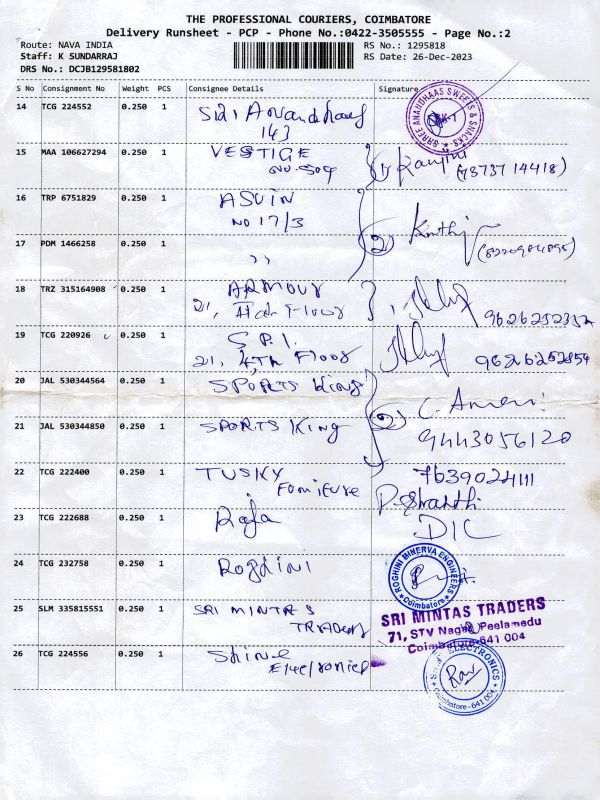 THE PROFESSIONAL COURIERS, COIMBATORE
Delivery Runsheet - PCP - Phone No.:0422-3505555 - Page No.:2
Route: NAVA INDIA
Staff: K SUNDARRAJ
DRS No.: DCJB129581802
RS No.: 1295818
RS Date: 26-Dec-2023
S No Consignment No Weight PCS Consignee Details Signature
14 TCG 224552 0.250 1
143
SHREE ANANDHAAS SWEETS & SNACKS
15 MAA 106627294 0.250 1 VESTIGE
NO. 509
(73737 14418)
16 TRP 6751829 0.250 1 ASVIN
NO 17/3
17 PDM 1466258 0.250 1 ,,
2)
18 TRZ 315164908 0.250 1 ARMOUR
21, Floor
19 TCG 220926 0.250 1 S.P.I.
21, 4Th Floor
20 JAL 530344564 0.250 1 SPORTS King
21 JAL 530344850 0.250 1 SPORTS King
2)
9443056120
22 TCG 222400 0.250 1 TUSKY
Forniture
7639024111
23 TCG 222688 0.250 1 Raja
DIC
24 TCG 232758 0.250 1 Rogdini
ROGHINI MINERVA ENGINEERS
Coimbatore
25 SLM 335815551 0.250 1 SRI MINTAS
TRADERS
SRI MINTAS TRADERS
71, STV Nagar, Peelamedu
Coimbatore-641 004
26 TCG 224556 0.250 1 Shine
Electronics
ELECTRONICS
Coimbatore-641 004
Rav